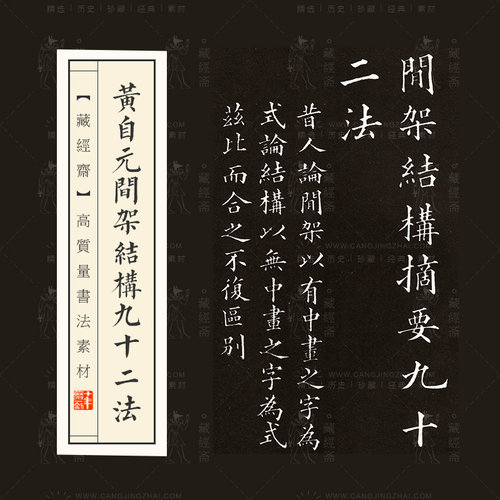 間架結構摘要九十
二法
昔人論間架以有中畫之字為
式論結構以無中畫之字為式
茲比而合之不復區别
黃自元間架結構九十二法
【藏經齋】高質量書法素材
精选｜历史｜珍藏｜经典｜素材
藏經斋
WWW.CANGJINGZHAI.COM